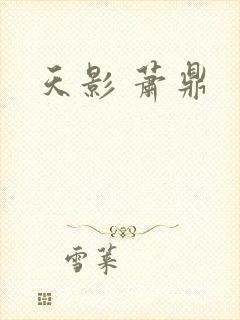 天影 萧鼎
雪莱